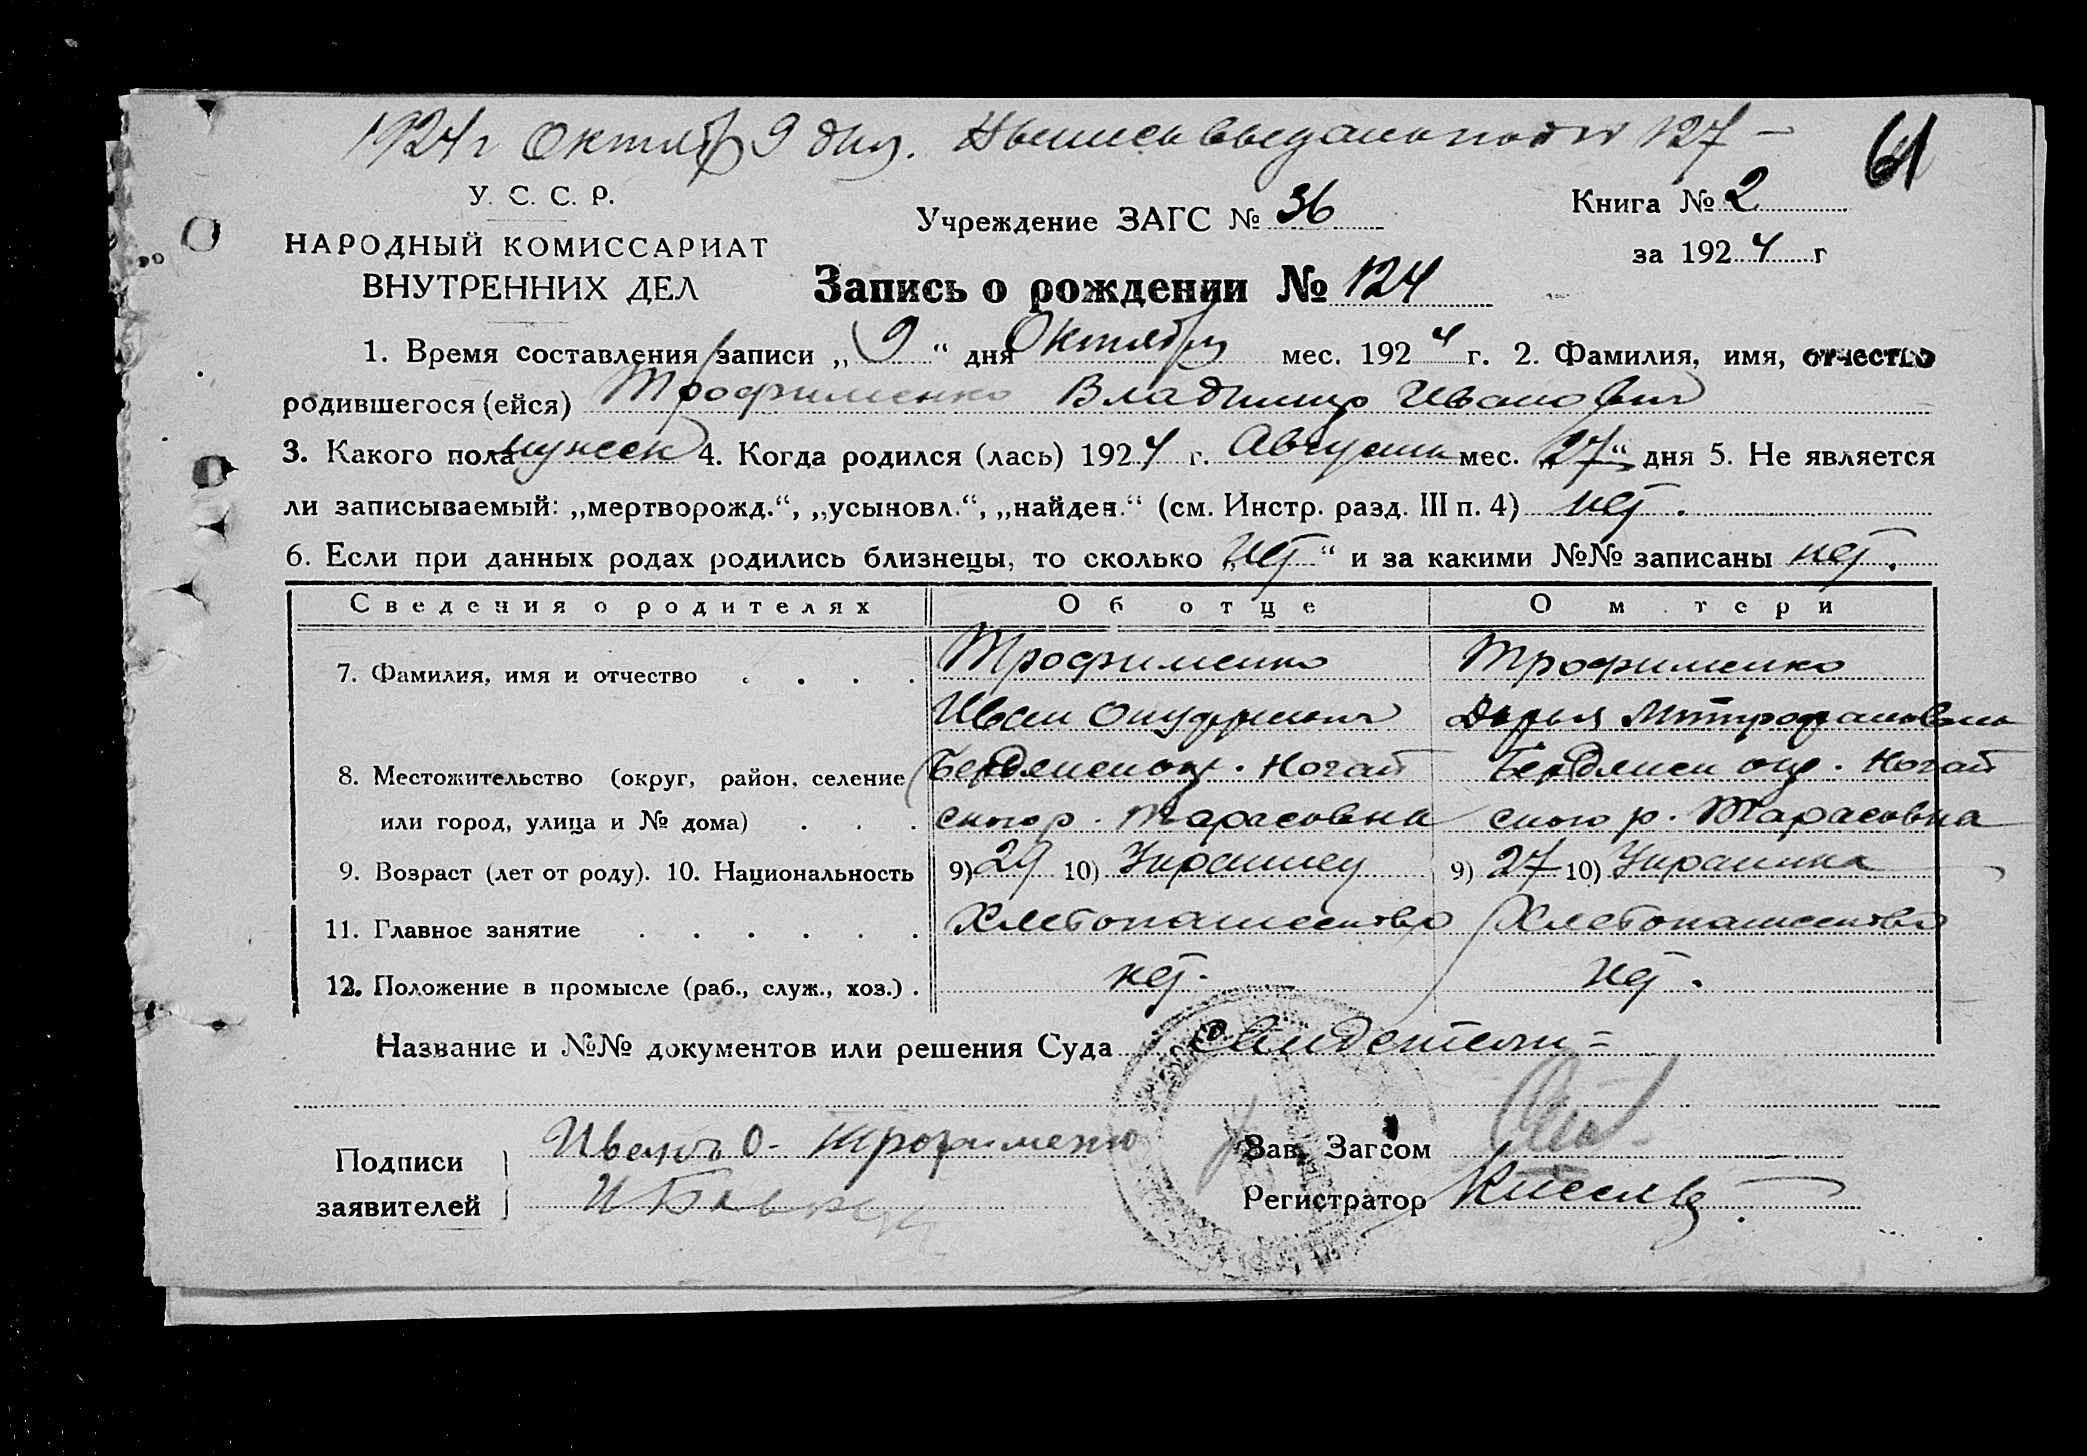 1924 г Октября 9 дня. Выпись выдана под № 127 —
61
У. С. С. Р.
НАРОДНЫЙ КОМИССАРИАТ
ВНУТРЕННИХ ДЕЛ
Учреждение ЗАГС № 36
Книга № 2
за 1924 г
Запись о рождении № 124
1. Время составления записи „9“ дня Октября мес. 1924 г. 2. Фамилия, имя, отчество
родившегося (ейся) Трофименко Владимир Иванович
3. Какого пола мужеск 4. Когда родился (лась) 1924 г. Августа мес. „27“ дня 5. Не является
ли записываемый: „мертворожд.“, „усыновл.“, „найден.“ (см. Инстр. разд. III п. 4) нет.
6. Если при данных родах родились близнецы, то сколько „нет“ и за какими №№ записаны нет.
Сведения о родителях Об отце О м тери
7. Фамилия, имя и отчество . . . . Трофименко Трофименко
Иван Дарья Митрофановна
8. Местожительство (округ, район, селение Бердянск окр. Ногай Бердянск окр. Ногай
или город, улица и № дома) . . . ского р. Тарасовка ского р. Тарасовка
9. Возраст (лет от роду). 10. Национальность 9) 29 10) Украинец 9) 27 10) Украинка
11. Главное занятие . . . . . . Хлебопашество Хлебопашество
12. Положение в промысле (раб., служ., хоз.) . нет. нет.
Название и №№ документов или решения Суда Свидетели =
Подписи Иванъ О- Трофименко Зав. Загсом
заявителей Регистратор